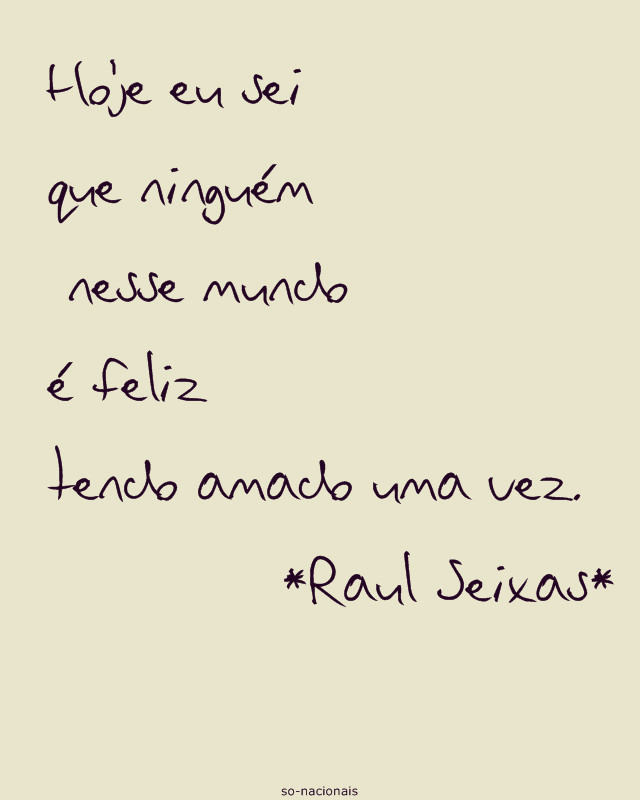 Hoje eu sei
que ninguém
nesse mundo
é feliz
tendo amado uma vez.
*Raul Seixas*
so-nacionais